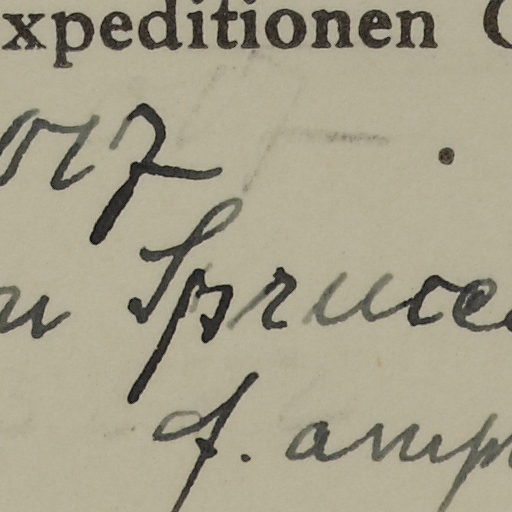 xpeditionen
017
Spruce
f. amp